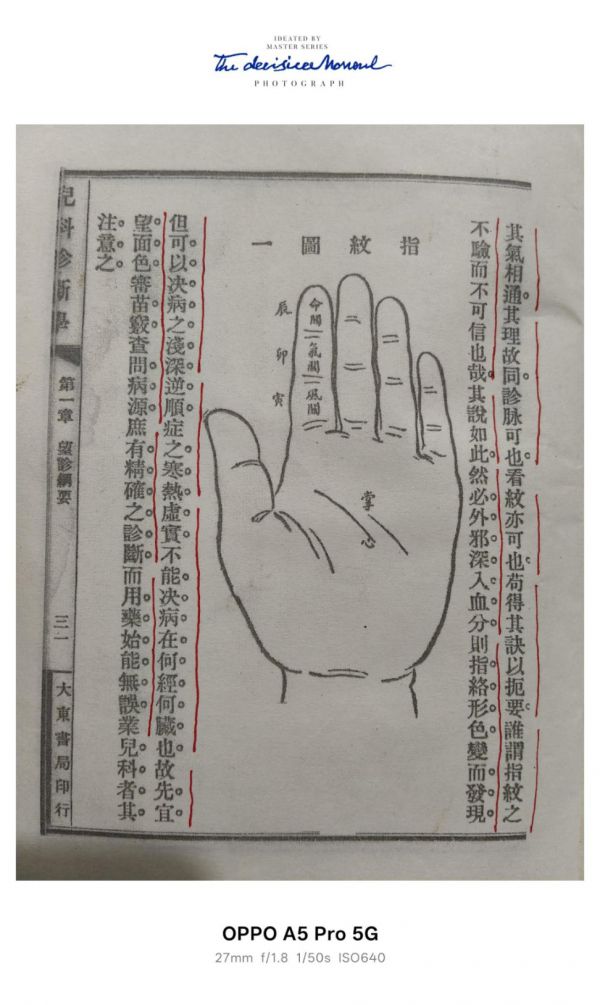 IDEATED BY
MASTER SERIES
The decisive Moment
PHOTOGRAPH
其氣相通其理故同診脉可也看紋亦可也苟得其訣以扼要誰謂指紋之
不驗而不可信也哉其說如此然必外邪深入血分則指絡形色變而發現
指紋圖一
命關
氣關
風關
辰
卯
寅
掌心
但可以决病之淺深逆順症之寒熱虛實不能决病在何經何臟也故先宜
望面色審苗竅查問病源庶有精確之診斷而用藥始能無誤業兒科者其
注意之
兒科診斷學
第一章 望診綱要
三一
大東書局印行
OPPO A5 Pro 5G
27mm f/1.8 1/50s ISO640